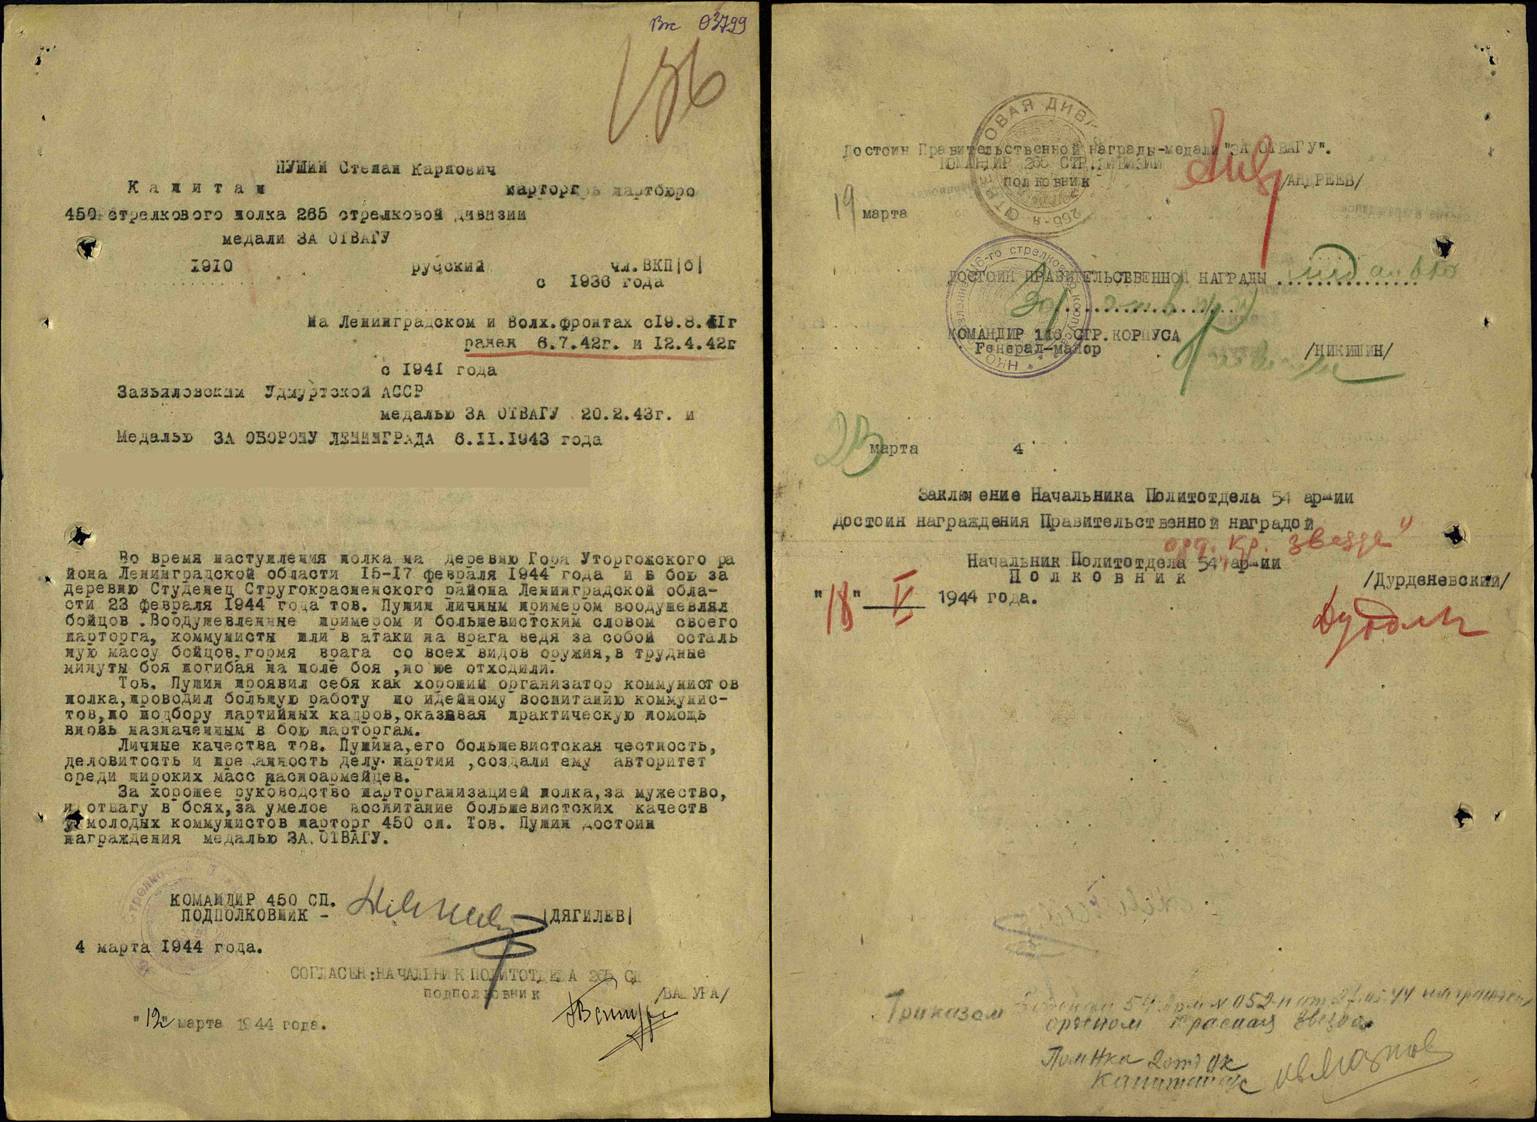 Вк 03799
156
ПУШИН Степан Карпович
Капитан парторгъ партбюро
450 стрелкового полка 265 стрелковой дивизии
медали ЗА ОТВАГУ
1910 русский чл.ВКП|б|
с 1936 года
На Ленинградском и Волх.фронтах с19.8.41г
ранен 6.7.42г. и 12.4.42г
с 1941 года
Завьяловским Удмуртской АССР
медалью ЗА ОТВАГУ 20.2.43г. и
Медалью ЗА ОБОРОНУ ЛЕНИНГРАДА 6.II.1943 года
Во время наступления полка на деревню Гора Уторгожского ра
йона Ленинградской области 15-17 февраля 1944 года и в бою за
деревню Студенец Стругокрасненского района Ленинградской обла-
сти 23 февраля 1944 года тов. Пушин личным примером воодушевлял
бойцов. Воодушевленные примером и большевистским словом своего
парторга, коммунисты шли в атаки на врага ведя за собой осталь
ную массу бойцов, громя врага со всех видов оружия, в трудные
минуты боя погибая на поле боя ,но не отходили.
Тов. Пушин проявил себя как хороший организатор коммунистов
полка, проводил большую работу по идейному воспитанию коммунис-
тов, по подбору партийных кадров, оказывая практическую помощь
вновь назначенным в бою парторгам.
Личные качества тов. Пушина, его большевистская честность,
деловитость и преданность делу партии ,создали ему авторитет
среди широких масс расноармейцев.
За хорошее руководство парторганизацией полка, за мужество,
и отвагу в боях, за умелое воспитание большевистских качеств
у молодых коммунистов парторг 450 сп. Тов. Пушин достоин
награждения медалью ЗА ОТВАГУ.
КОМАНДИР 450 СП.
ПОДПОЛКОВНИК - |ДЯГИЛЕВ|
4 марта 1944 года.
СОГЛАСЕН:НАЧАЛЬНИК ПОЛИТОТДЕЛА 265 СД
подполковник /ВАЦУРА/
"12" марта 1944 года.
Достоин Правительственной награды-медали "ЗА ОТВАГУ".
КОМАНДИР 265 СТР.ДИВИЗИИ
полковник /АНДРЕЕВ/
19 марта
ДОСТОИН ПРАВИТЕЛЬСТВЕННОЙ НАГРАДЫ медалью
За отвагу
КОМАНДИР 116 СТР.КОРПУСА
Генерал-майор /НИКИШИН/
23 марта 4
Заключение Начальника Политотдела 54 армии
Достоин награждения Правительственной наградой
орд. Кр. Звезде"
Начальник Политотдела 54 армии
Полковник /Дурденевский/
"18" V 1944 года.
Приказом Войскам 54 Арм № 052-н от 27.05.44 награжден
орденом Красная Звезда
Пом Нка 2 отд ОК
Капитан а/с